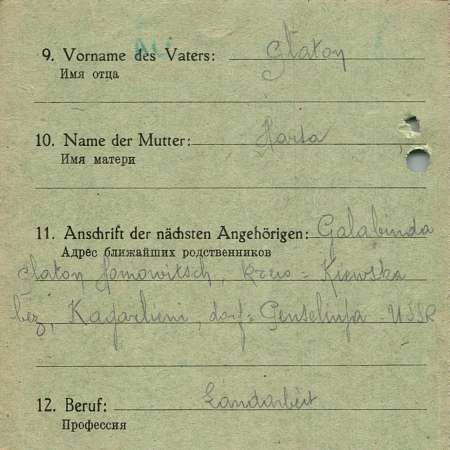 9. Vorname des Vaters: Platon
Имя отца
10. Name der Mutter:
Имя матери
11. Anschrift der nächsten Angehörigen: Galabinda
Адрес ближайших родственников
Platon kreis - Kiewska
bez, Kagarlieni, dorf = - USSR
12. Beruf: Landarbeit
Профессия